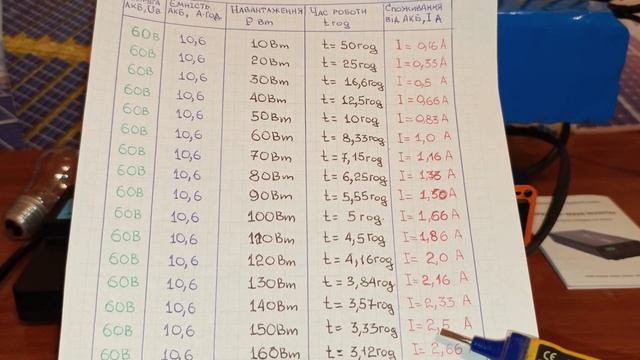 АКБ, Uв ЄМНІСТЬ АКБ, А·год НАВАНТАЖЕННЯ P Вт ЧАС РОБОТИ t год СПОЖИВАННЯ ВІД АКБ, I А
60В 10,6 10Вт t= 50год I= 0,16А
60В 10,6 20Вт t= 25год I=0,33А
60В 10,6 30Вт t= 16,6год I= 0,5 А
60В 10,6 40Вт t= 12,5год I= 0,66А
60В 10,6 50Вт t= 10год I= 0,83А
60В 10,6 60Вт t= 8,33год I= 1,0 А
60В 10,6 70Вт t= 7,15год I= 1,16 А
60В 10,6 80Вт t= 6,25год I= 1,33 А
60В 10,6 90Вт t= 5,55год I= 1,50 А
60В 10,6 100Вт t= 5 год. I= 1,66 А
60В 10,6 110Вт t= 4,5год I= 1,86 А
60В 10,6 120Вт t= 4,16год I= 2,0 А
60В 10,6 130Вт t= 3,84год I= 2,16 А
60В 10,6 140Вт t= 3,57год I=2,33 А
60В 10,6 150Вт t= 3,33год I=2,5 А
60В 10,6 160Вт t= 3,12год I= 2,66
CE